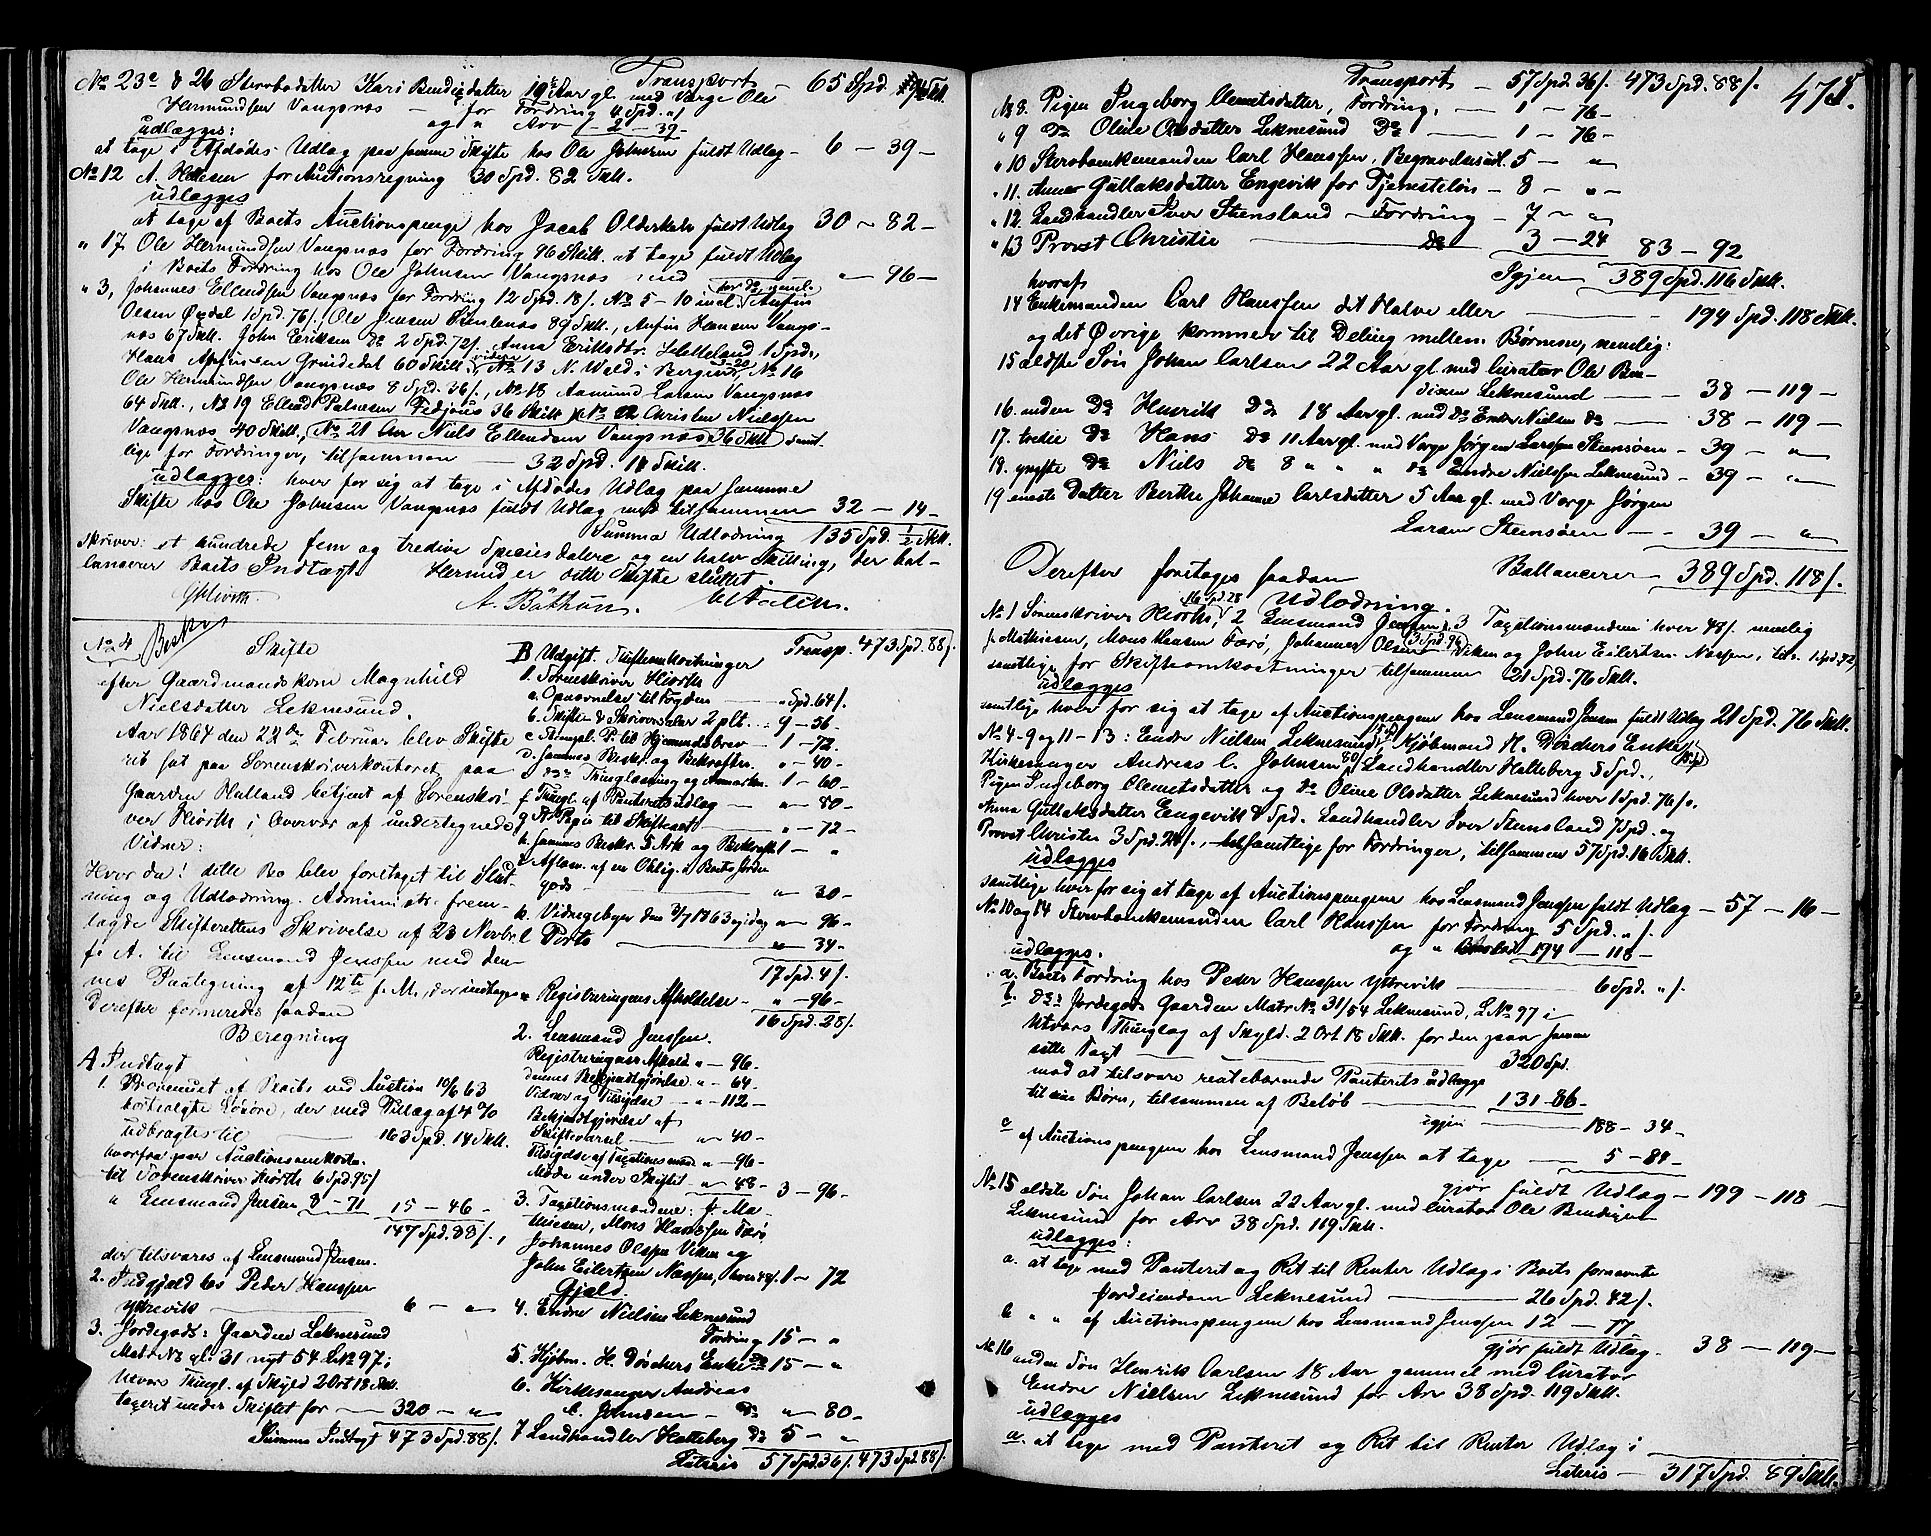 Transport — 65 Spd.
No 23c & 26 Sterbodatter Kari Bendixdatter 19 Aar gl. med Verge Ole
Hermundsen Vangsnæs — for Fordring 4 Spd. " /
og " Arv — 2 — 39 —
udlægges:
at tage i Afdødes Udlæg paa samme Skifte hos Ole Johnsen fuldt Udlæg — 6 — 39 —
No 12 A. for Auctionsregning 30 Spd. 82 Skill.
udlægges
at tage af Boets Auctionspenge hos Jacob fuldt Udlæg 30 — 82 —
" 17. Ole Hermundsen Vangsnæs for Fordring 96 Skill. at tage fuldt Udlæg
i Boets Fordring hos Ole Johnsen Vangsnæs med — " — 96 —
" 3, Johannes Ellendsen Vangsnæs for Fordring 12 Spd. 18 /. No 5 — 10 incl. Anfin
Olsen 1 Spd. 76 /. Ole Jensen 89 Skill., Anfin Hansen Vangs-
næs 67 Skill. John Eriksen do 2 Spd. 72 /. Anna Eriksdtr. Helleland 1 Spd.,
Hans Anfinsen Grindedal 60 Skill. videre No 13 N. Wald i Bergen, No 16
Ole Hermundsen Vangsnæs 8 Spd. 36 /., No 18 Aamund Larsen Vangsnæs
64 Skill., No 19 Ellend Fedjous 36 Skill No 22 Christen Nielssen
Vangsnæs 40 Skill., No 21 Niels Ellendsen Vangsnæs 36 Skill samt-
lige for Fordringer, tilsammen — 32 Spd. 14 Skill.
udlægges: hver for sig at tage i Afdødes Udlæg paa samme
Skifte hos Ole Johnsen Vangsnæs fuldt Udlæg med tilsammen 32 — 14 —
Summa Udlodning 135 Spd. ½ Skill.
skriver: et hundrede fem og tredive Speciesdalere og en halv Skilling, der bal-
lancerer Boets Indtægt. Hermed er dette Skifte sluttet.
Hiorth. A. Bøthun.
No 4 Beskr
Skifte
efter Gaardmandskone Magnhild
Nielsdatter Leknesund.
Aar 1864 den 22de Februar blev Skifte
ret sat paa Sorenskriverkontoret paa
Gaarden Husland betjent af Sorenskri-
ver Hiorth i Overvær af undertegnede
Vidner:
Hvor da! dette Bo blev foretaget til Slut-
ning og Udlodning. Administr. frem-
lagde Skifterettens Skrivelse af 23 Novbr.
f. A. til Lensmand Jenssen med den-
nes Paategning af 12te f. M., der indtages
Derefter formeredes saadan
Beregning
A Indtægt
1. Provenuet af Boets ved Auction 10/6 63
bortsolgte Løsøre, der med Tillæg af 4 %
udbragtes til — 163 Spd. 14 Skill.
hvorfra gaar Auctionsomkostn.
til Sorenskriver Hiorth 6 Spd. 95 /
" Lensmand Jenssen 8 — 71
15 — 46 —
147 Spd. 88 /.
der tilsvares af Lensmand Jenssen.
2. Indgjæld hos Peder Hanssen
Ytrevik — 6 — " —
3. Jordegods: Gaarden Leknesund
Matr No gl. 31 nyt 54 L No 97 i
Utvær Thingl. af Skyld 2 Ort 18 Skill.
taxeret under Skiftet for — 320 — " —
Summa Indtægt 473 Spd. 88 /.
Transp. 473 Spd. 88 /.
B Udgift. Skifteomkostninger
1. Sorenskriver Hiorth
a. Opnævnelse til Fogden — " Spd. 64 /.
b. Skifte & Skriversaler 2 pCt. — 9 — 56
c. Stempl. P. til Hjemmelsbrev — 1 — 72 —
d. Sammes Beskr. og Bekræften. " — 40 —
e. do Thinglæsning og Anmærkn. 1 — 60 —
f. Thingl. af Panteretsudlæg — " — 80 —
g. St. Papir til Skifteact — " — 72 —
h. Sammes Beskr. 5 Ark og Bekræft. 1 — "
i. Aflæsn. af en Oblig. i Boets Jorde
gods — " — 30 —
k. Vidnegebyr den 3/7 1863 og idag " — 96 —
l. Porto — " — 34 —
17 Spd. 4 /.
÷ Registreringens Afholdelse — " — 96 —
16 Spd. 28 /.
2. Lensmand Jenssen.
Registreringens Afhold. " — 96 —
dennes Bekjendtgjørelse " — 64 —
Vidner og Tilsigelse — " — 112 —
Bekjendtgjørelse af
Skiftevarsel — " — 40 —
Tilsigelse af Taxtionsmænd " — 96 —
Møde under Skiftet — " — 48 — 3 — 96 —
3. Taxtionsmændene: J. Ma-
thiesen, Mons Hanssen Færø,
Johannes Olssen Viken og
John Eilertsen Næssen, hver 48 /. 1 — 72
Gjæld.
4. Endre Nielsen Leknesund
Fordring 15 — "
5. Kjøbm. H. Døschers Enke do 15 — "
6. Kirkesanger Andreas
C. Johnsen — do " — 80 —
7 Landhandler Halleberg do 5 — "
Lateris 57 Spd. 36 /. 473 Spd. 88 /.
Transport — 57 Spd. 36 /. 473 Spd. 88 /.
471.
No 8. Pigen Ingeborg Clemetsdatter, Fordring, — 1 — 76 —
" 9 do Oline Olsdatter Leknesund do — 1 — 76 —
" 10 Sterboenkemanden Carl Hanssen, Begravelsesudl. 5 — "
" 11. Anna Gullaksdatter Engevik for Tjenesteløn — 8 — " —
" 12. Landhandler Iver Stensland — Fordring — 7 — "
" 13 Provst Christie — do 3 — 24 83 — 92
Igjen 389 Spd. 116 Skill.
hvoraf
14 Enkemanden Carl Hanssen det Halve eller — 194 Spd. 118 Skill.
og det Øvrige kommer til Deling mellem Børnene, nemlig:
15 ældste Søn Johan Carlsen 22 Aar gl. med Curator Ole Ben-
dixen Leknesund — 38 — 119 —
16. anden do Henrik do 18 Aar gl. med do Endre Nielsen do — 38 — 119 —
17. tredie do Hans do 11 Aar gl. med Verge Jørgen Larssen Steensøen — 39 — "
18. yngste do Niels do 8 " " " do Endre Nielssen Leknesund — 39 — "
19 eneste Datter Berthe Johanne Carlsdatter 5 Aar gl. med Verge Jørgen
Larsen Steensøen — 39 — "
Ballancerer — 389 Spd. 118 /.
Derefter foretages saadan
Udlodning.
No 1 Sorenskriver Hiorth, 16 Spd. 28 2 Lensmand Jenssen, 3 Taxtionsmændene hver 48 /. nemlig
J. Mathiesen, Mons Hansen Færø, Johannes Olsen 3 Spd. 96 Viken og John Eilertsen Næssen, tils. 1 Spd. 72,
samtlige for Skifteomkostninger tilsammen 21 Spd. 76 Skill.
udlægges
samtlige hver for sig at tage af Auctionspengene hos Lensmand Jensen fuldt Udlæg 21 Spd. 76 Skill.
No 4 — 9 og 11 — 13: Endre Nielsen Leknesund, Kjøbmand H. Døschers Enke,
Kirkesanger Andreas C. Johnsen 80 /. Landhandler Halleberg 5 Spd.,
Pigen Ingeborg Clemetsdatter og do Oline Olsdatter Leknesund hver 1 Spd. 76 /.,
Anna Gullaksdatter Engevik 8 Spd. Landhandler Iver Stensland 7 Spd. og
Provst Christie 3 Spd. 24 /., samtlige for Fordringer, tilsammen 57 Spd. 16 Skill.
udlægges
samtlige hver for sig at tage af Auctionspengene hos Lensmand Jenssen fuldt Udlæg — 57 — 16 —
No 10 og 14 Sterboenkemanden Carl Hanssen for Fordring 5 Spd. " /.
og " Boeslod 194 — 118 —
udlægges.
a. Boets Fordring hos Peder Hanssen Ytrevik — 6 Spd. " /.
b. dets Jordegods Gaarden Matr No 31/54 Leknesund, L No 97 i
Utvær Thinglag af Skyld 2 Ort 18 Skill. for den paa samme
satte Taxt — 320 Spd.
mod at tilsvare rentebærende Panterets udlægge
til sine Børn, tilsammen af Beløb — 131 — 86 —
igjen — 188 — 34 —
c af Auctionspengene hos Lensmand Jenssen at tage — 5 — 84 —
gjør fuldt Udlæg — 199 — 118 —
No 15 ældste Søn Johan Carlsen 22 Aar gl. med Curator Ole Bendixen
Leknesund for Arv 38 Spd. 119 Skill.
udlægges:
a. at tage med Panteret og Ret til Renter Udlæg i Boets fornævnte
Jordeiendom Leknesund — 26 Spd. 42 /.
b " " af Auctionspengene hos Lensmand Jenssen 12 — 77
gjør fuldt Udlæg. 38 — 119 —
No 16 anden Søn Henrik Carlsen 18 Aar gammel med Curator
Endre Nielsen Leknesund for Arv 38 Spd. 119 Skill.
udlægges
a. at tage med Panteret og Ret til Renter Udlæg i
Lateris — 317 Spd. 89 Skill.